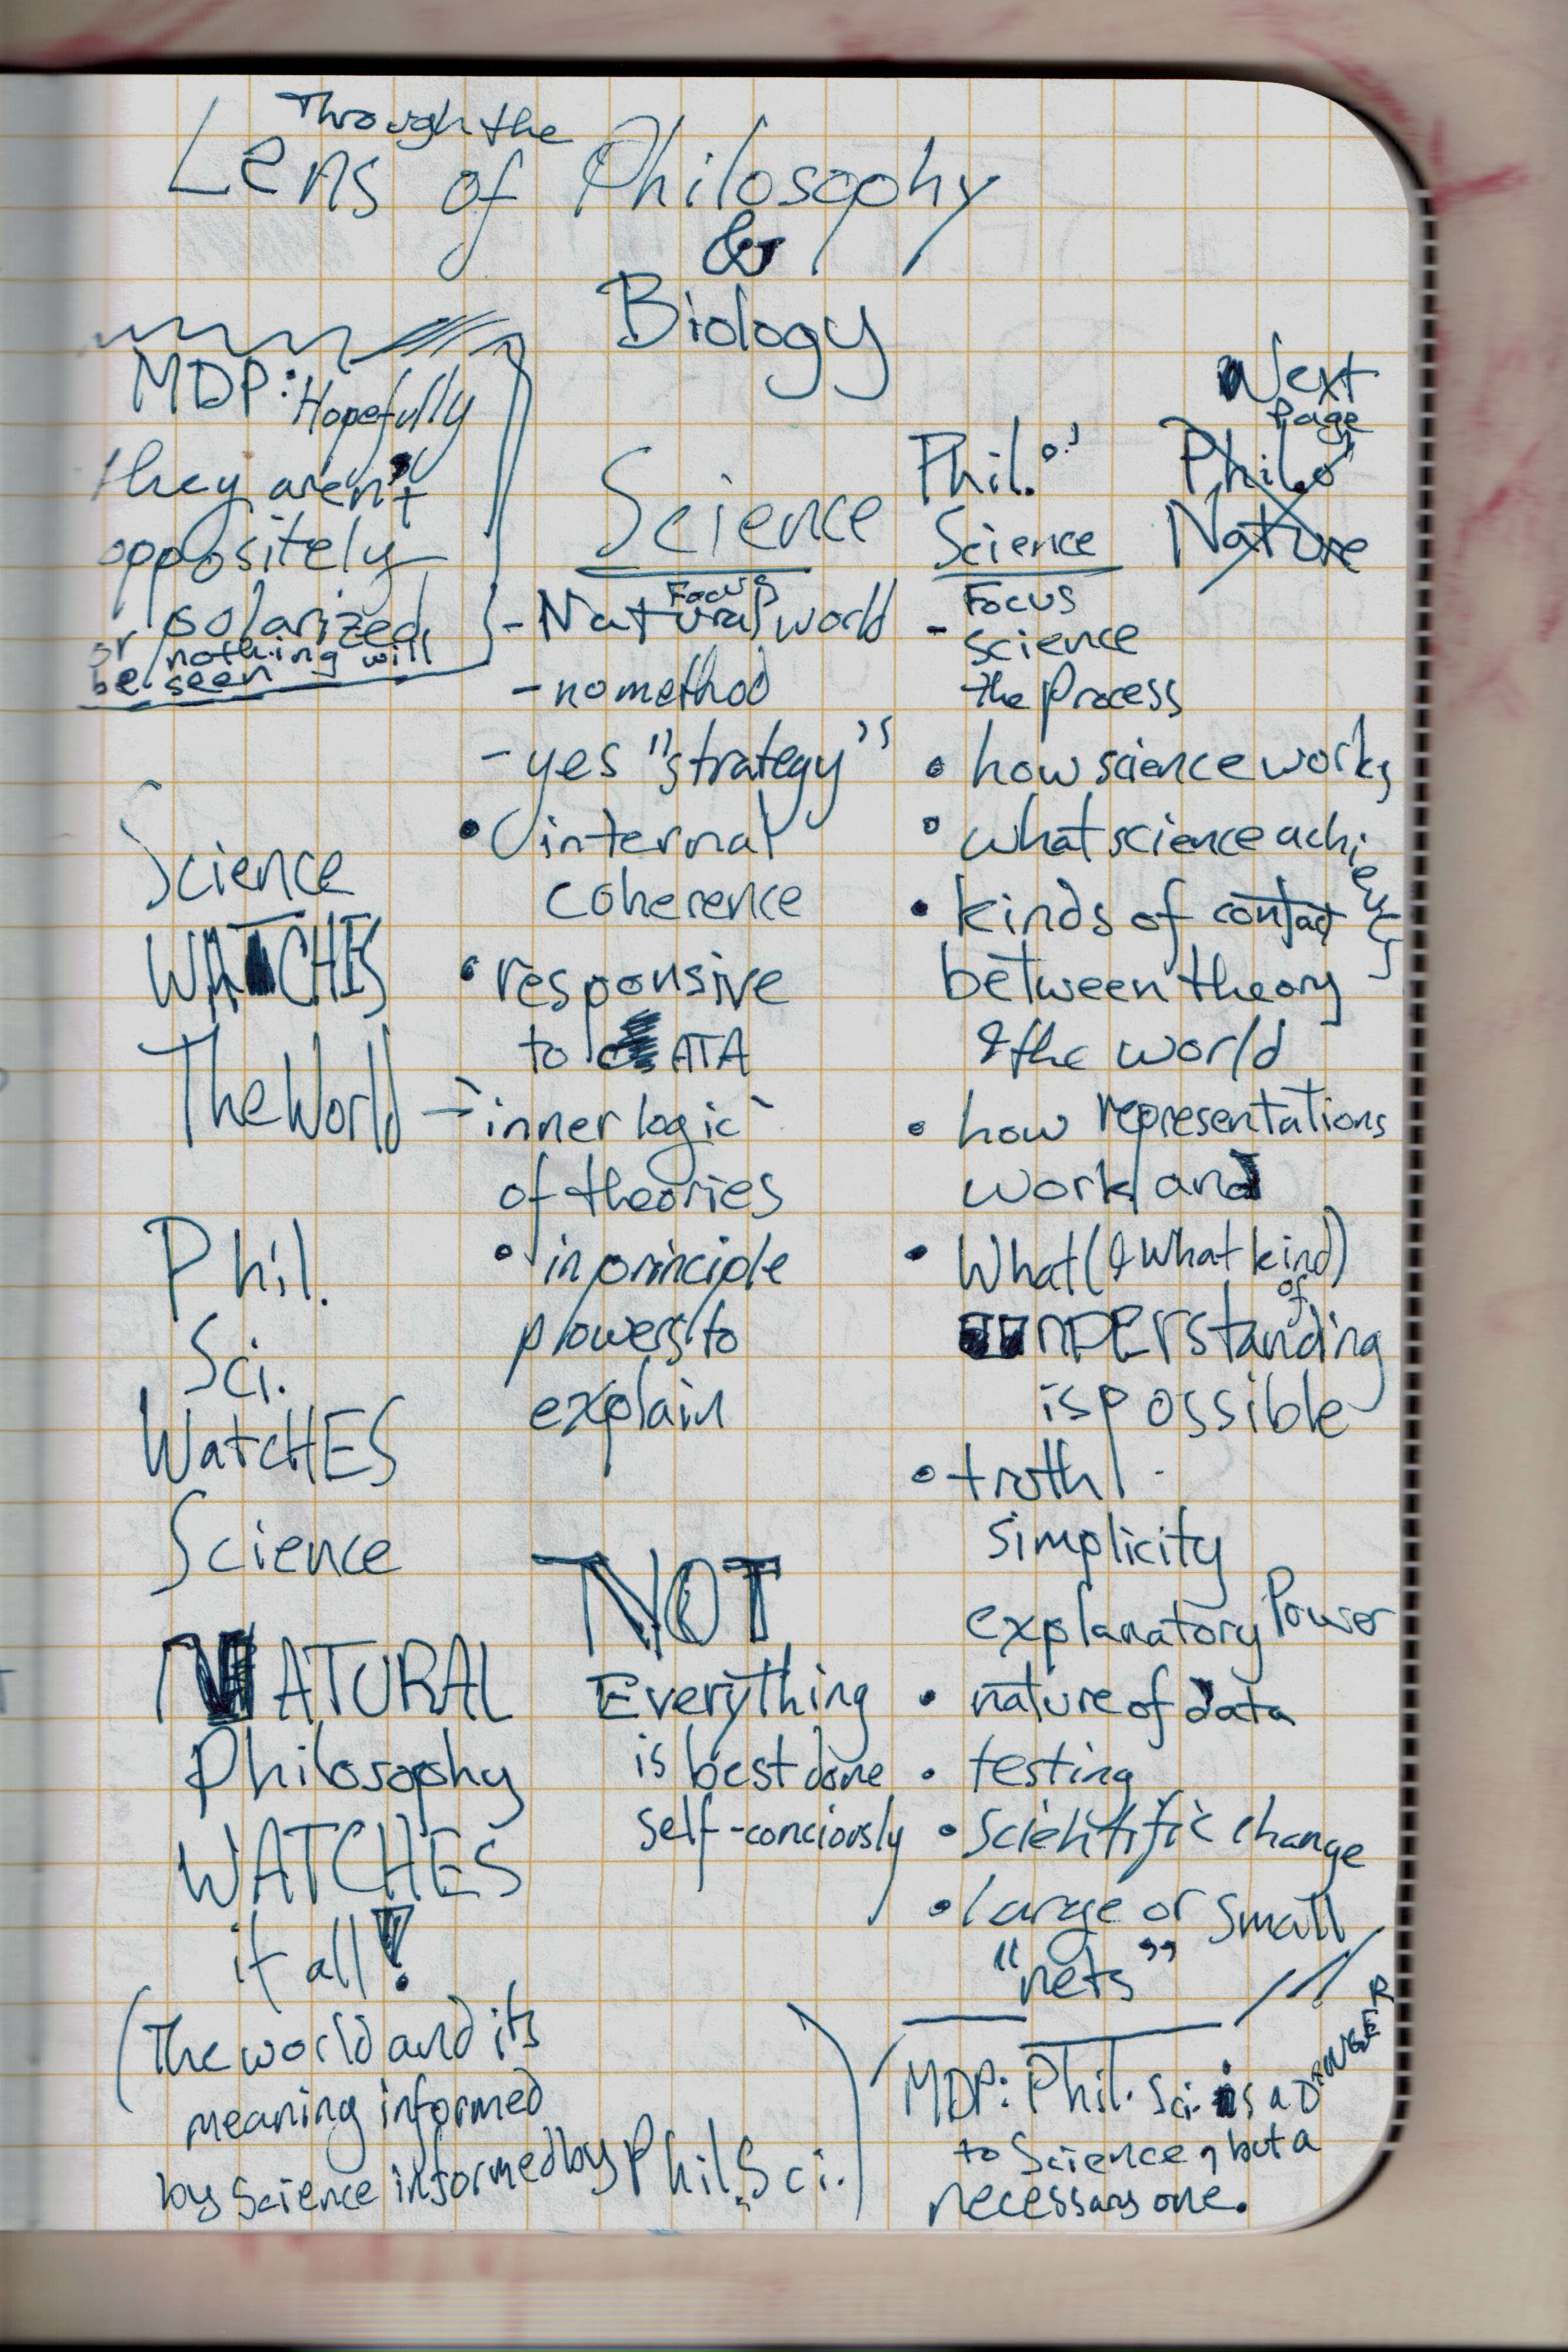 Through the
Lens of Philosophy
&
Biology
MDP: Hopefully
they aren't
oppositely
polarized
or nothing will
be seen
Science
WATCHES
The World
Phil.
Sci.
WatcHES
Science
NATURAL
Philosophy
WATCHES
it all!
(The world and its
meaning informed
by Science informed by Phil. Sci.)
Science
Focus
- Natural world
- no method
- yes "strategy"
• internal
coherence
• responsive
to dATA
- inner logic
of theories
• in principle
powers to
explain
NOT
Everything
is best done
self-conciously
Phil. o'
Science
Focus
- science
the process
• how science works
• what science achieves
• kinds of contact
between theory
& the world
• how representations
work and
• What (& what kind)
of
unDERstanding
is possible
• truth
simplicity
explanatory Power
• nature of data
• testing
• scientific change
• large or small
"nets"
MDP: Phil. Sci. is a DANGER
to Science, but a
necessary one.
Next
Page
Phil. o'
Nature